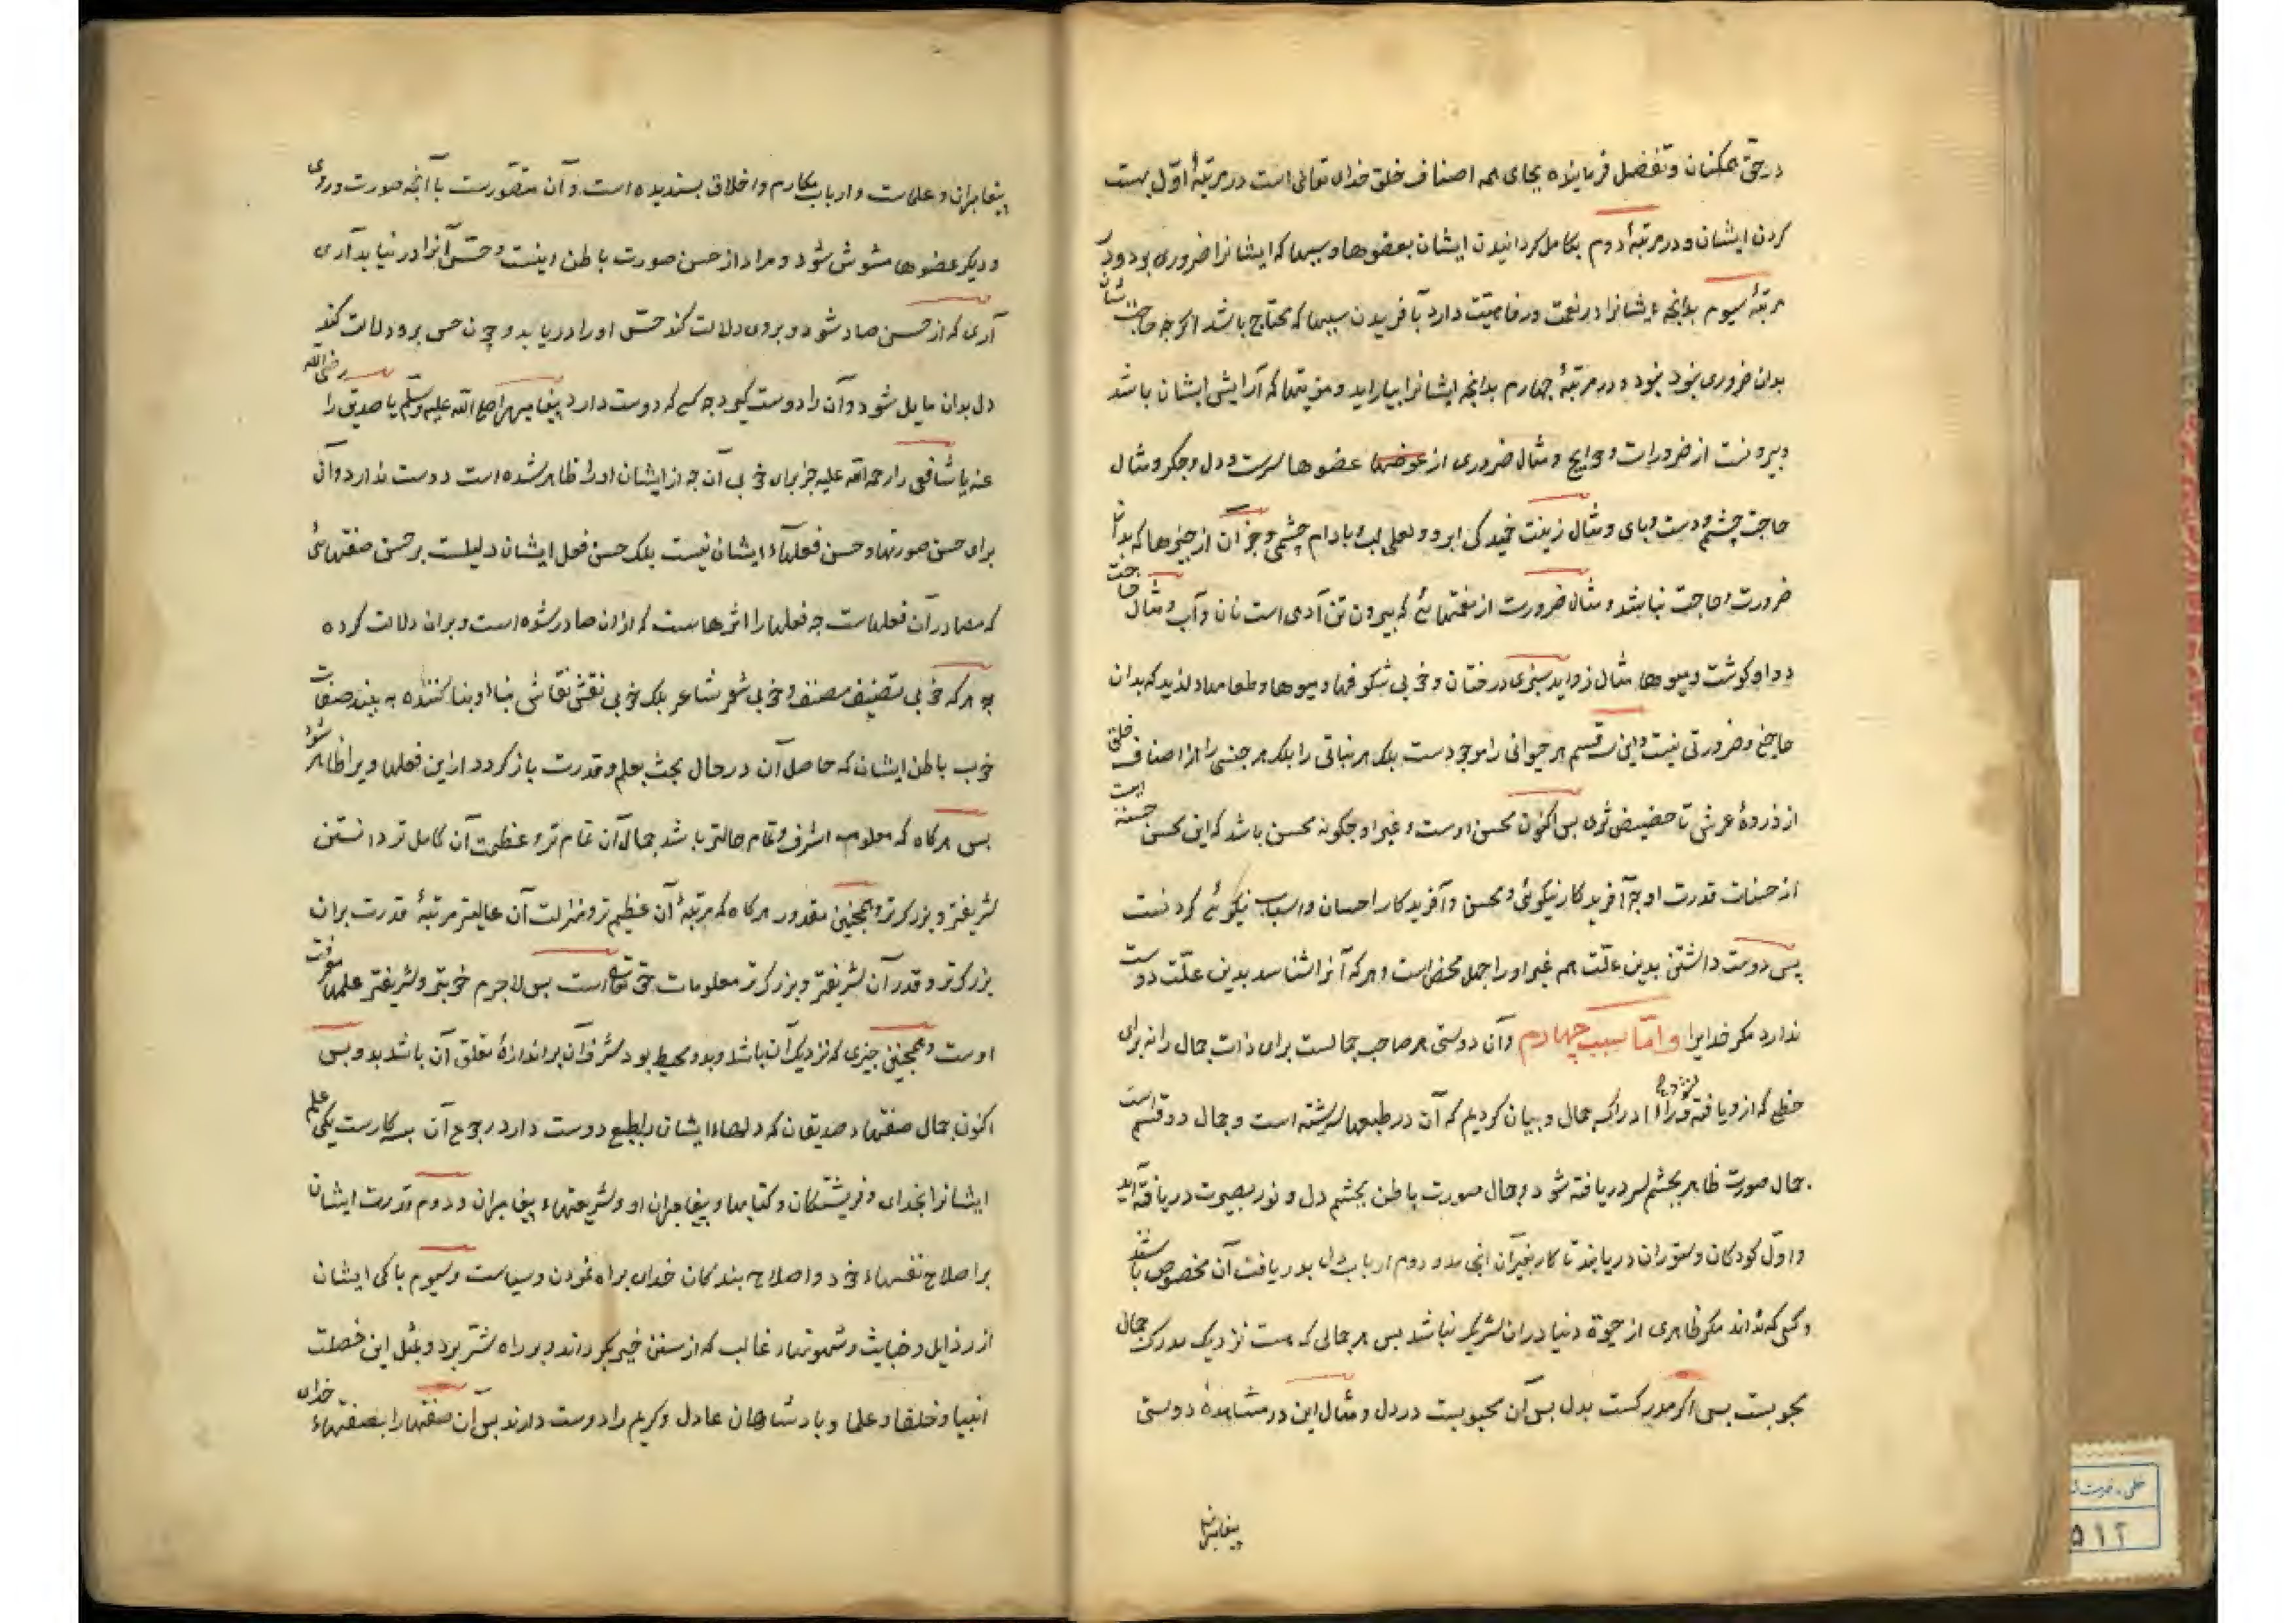 در حق همکنان و تفضل فرماینده بجای همه اصناف خلق خدای تعالی است در مرتبهٔ اوّل بهست
کردن ایشان و در مرتبهٔ دوم بکامل کردانیدن ایشان بعضوها و سببها که ایشانرا ضروری بود و در
مرتبهٔ سیوم بدانچه ایشانرا در نعمت و رفاهیت دارد بآفریدن سببها که محتاج باشد اکر چه حاجت ایشان
بدان ضروری نبود و در مرتبهٔ چهارم بدانچه ایشانرا بیاراید و مزیتها که آرایش ایشان باشد
و بیرونست از ضرورات و حوایج و مثال ضروری از عضوها سرست و دل و جکر و مثال
حاجت چشم و دست و پای و مثال زینت خمیدکی ابرو و لعلی لب و بادام چشمی و جز آن از چیزها که بدان
ضرورت و حاجت نباشد و مثال ضرورت از نعمتهائی که بیرون تن آدمی است نان و آب و مثال حاجت
دوا و کوشت و میوها مثال زواید سبزی درختان و خوبی شکوفها و میوها و طعامهاء لذیذ که بدان
حاجتی و ضرورتی نیست و این سه قسم هر حیوانی را موجودست بلکه هر نباتی را بلکه هر جنسی را از اصناف خلق
از ذروهٔ عرش تا حضیض ثری پس اکنون محسن اوست و غیر او چکونه محسن باشد که این محسن حسنه است
از حسنات قدرت او چه آفریدکار نیکوئی و محسن و آفریدکار احسان و اسباب نیکوئی کردنست
پس دوست داشتن بدین علّت هم غیر او را جهل محض است و هر که آنرا شناسد بدین علّت دوست
ندارد مکر خدایرا و امّا سبب چهارم و آن دوستی هر صاحب جمالست برای ذات جمال را نه برای
حظی که ازو یافته شود وراء ادراک جمال و بیان کردیم که آن در طبعها سرشته است و جمال دو قسم است
جمال صورت ظاهر بچشم سر دریافته شود و جمال صورت باطن بچشم دل و نور بصیرت دریافته آید
و اوّل کودکان و ستوران دریابند تا کار بغیر آن انجامد و دوم ارباب دل بدریافت آن مخصوص باشند
و کسی که نداند مکر ظاهری از حیوة دنیا در آن شریک نباشد پس هر جمالی که هست نزدیک مدرک جمال
محبوبست پس اکر مدرکست بدل پس آن محبوبست در دل و مثال این در مشاهدهٔ دوستی
پیغامبران
پیغامبران و علماست و ارباب مکارم و اخلاق پسندیده است و آن متصوّرست با آنچه صورت و روی
و دیکر عضوها مشوش شود و مراد از حسن صورت باطن اینست و حسّ آنرا درنیابد آری
آری که از حسن صادر شود و بر وی دلالت کند حسّ او را دریابد و چون حس برو دلالت کند
دل بدان مایل شود و آن را دوست کیرد چه کسی که دوست دارد پیغامبر را صلی الله علیه وسلّم یا صدیق را رضی الله
عنه یا شافعی را رحمة الله علیه جز برای خوبی آن چه از ایشان او را ظاهر شده است دوست ندارد و آن
برای حسن صورتها و حسن فعلهاء ایشان نیست بلکه حسن فعل ایشان دلیلست بر حسن صفتهائی
که مصادر آن فعلهاست چه فعلها را اثرهاست که از آن صادر شده است و بران دلالت کرده
چه هر که خوبی تصنیف مصنف و خوبی شعر شاعر بلکه خوبی نقش نقاش بناء و بنا کننده به بیند صفات
خوب باطن ایشان که حاصل آن در حال بحث بعلم و قدرت باز کردد از این فعلها ویرا ظاهر شود
پس هرکاه که معلوم اشرف و تمام حالتر باشد جمال آن تمام تر و عظمت آن کامل تر دانستن
شریفتر و بزرکتر و همچنین مقدور هرکاه که مرتبهٔ آن عظیم تر و منزلت آن عالیتر مرتبهٔ قدرت بران
بزرکتر و قدر آن شریفتر و بزرکتر معلومات حق تعالی است پس لاجرم خوبتر و شریفتر علمها معرفت
اوست و همچنین چیزی که نزدیک آن باشد و بدو محیط بود شرف آن براندازهٔ تعلق آن باشد بدو پس
اکنون جمال صفتهاء صدیقان که دلهاء ایشان را بطبع دوست دارد رجوع آن بسه کارست یکی علم
ایشانرا بخدای و فریشتکان و کتابها و پیغامبران او و شریعتهاء پیغامبران و دوم قدرت ایشان
بر اصلاح نفسهاء خود و اصلاح بندکان خدای براه نمودن و سیاست و سیوم پاکی ایشان
از رذایل و خبایث و شهوتهاء غالب که از سنن خیر بکرداند و بر راه شر برد و بمثل این خصلت
انبیا و خلفا و علما و پادشاهان عادل و کریم را دوست دارند پس آن صفتها را بصفتهاء خدای
۵۱۲